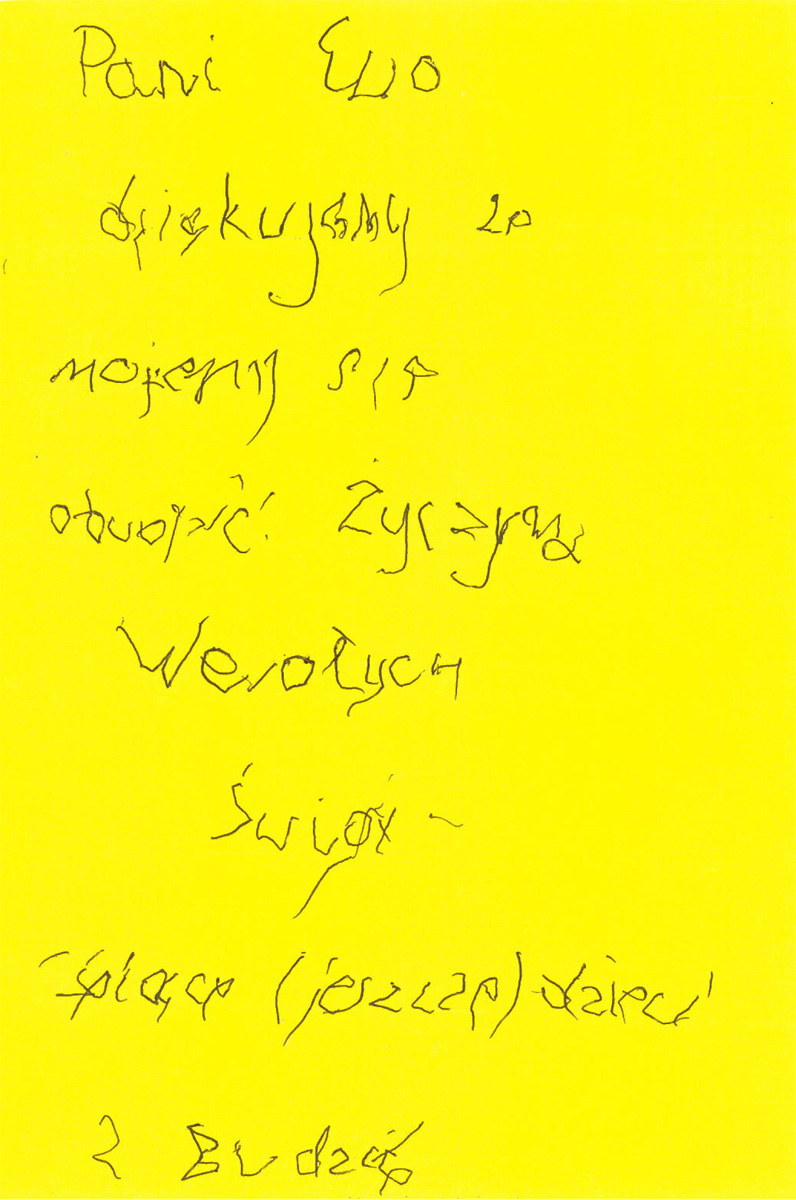 Pani Ewo
dziękujemy że
możemy się
obudzić. Życzymy
Wesołych
Świąt -
śpiące (jeszcze) dzieci
z